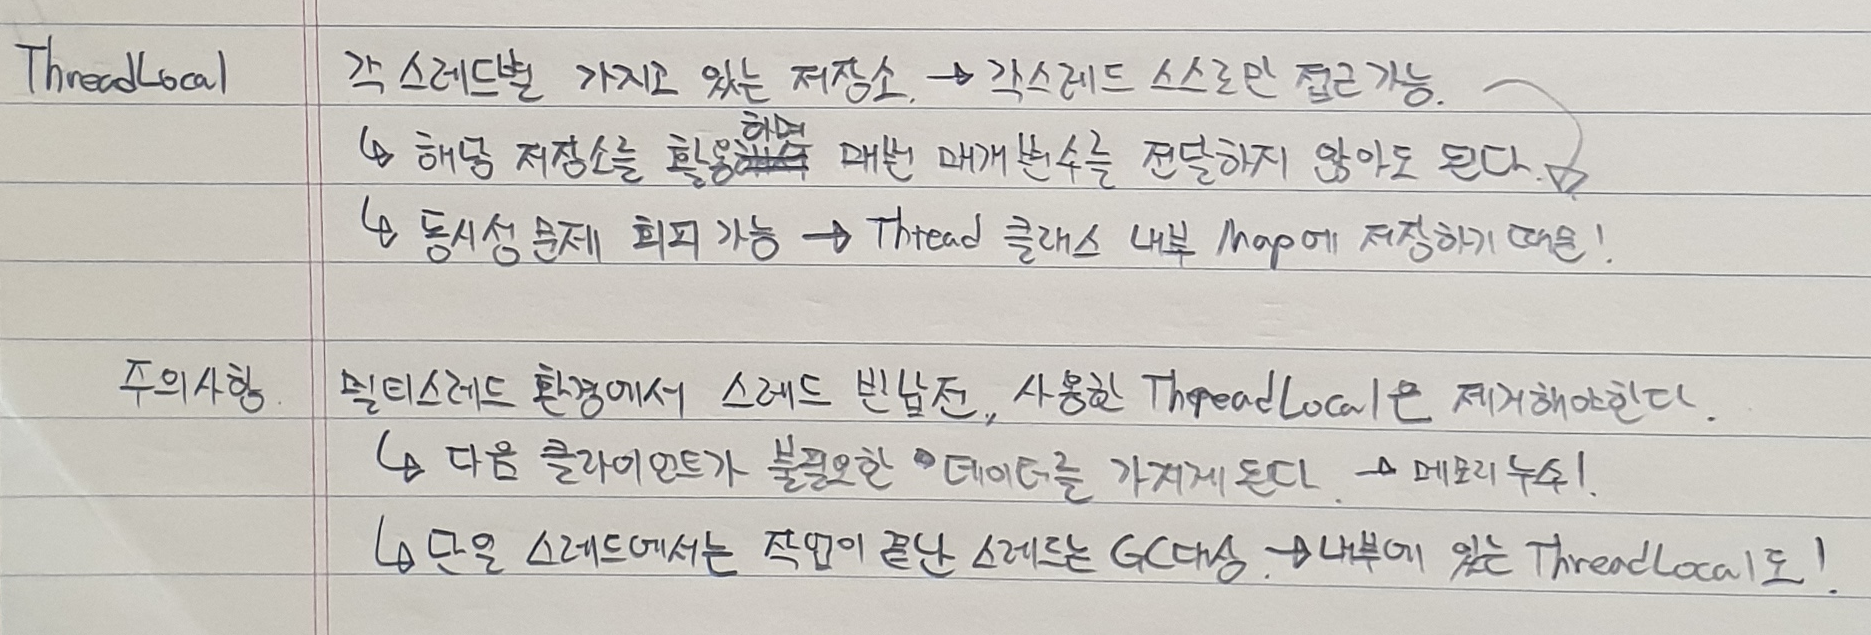 ThreadLocal 각 스레드별 가지고 있는 저장소. → 각 스레드 스스로만 접근 가능.
↳ 해당 저장소를 활용하며 매번 매개변수를 전달하지 않아도 된다.
↳ 동시성 문제 회피 가능 → Thread 클래스 내부 Map에 저장하기 때문!
주의사항. 멀티스레드 환경에서 스레드 반납전, 사용한 ThreadLocal은 제거해야한다.
↳ 다음 클라이언트가 불필요한 데이터를 가지게 된다. → 메모리 누수!.
↳ 단일 스레드에서는 작업이 끝난 스레드는 GC대상. → 내부에 있는 ThreadLocal도!